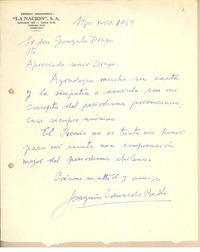 EMPRESA PERIODISTICA
"LA NACION", S. A.
SANTIAGO
Stgo nov. 1959
Sr don Gonzalo Drago
Pte.
Apreciado señor Drago.
Agradezco mucho su carta
y la simpatía y acuerdo con mi
concepto del periodismo provinciano,
casi siempre anónimo.
El Premio no es tanto un honor
para mí cuanto una comprensión
mejor del periodismo chileno.
Créame su atto SS y amigo
Joaquín Edwards Bello